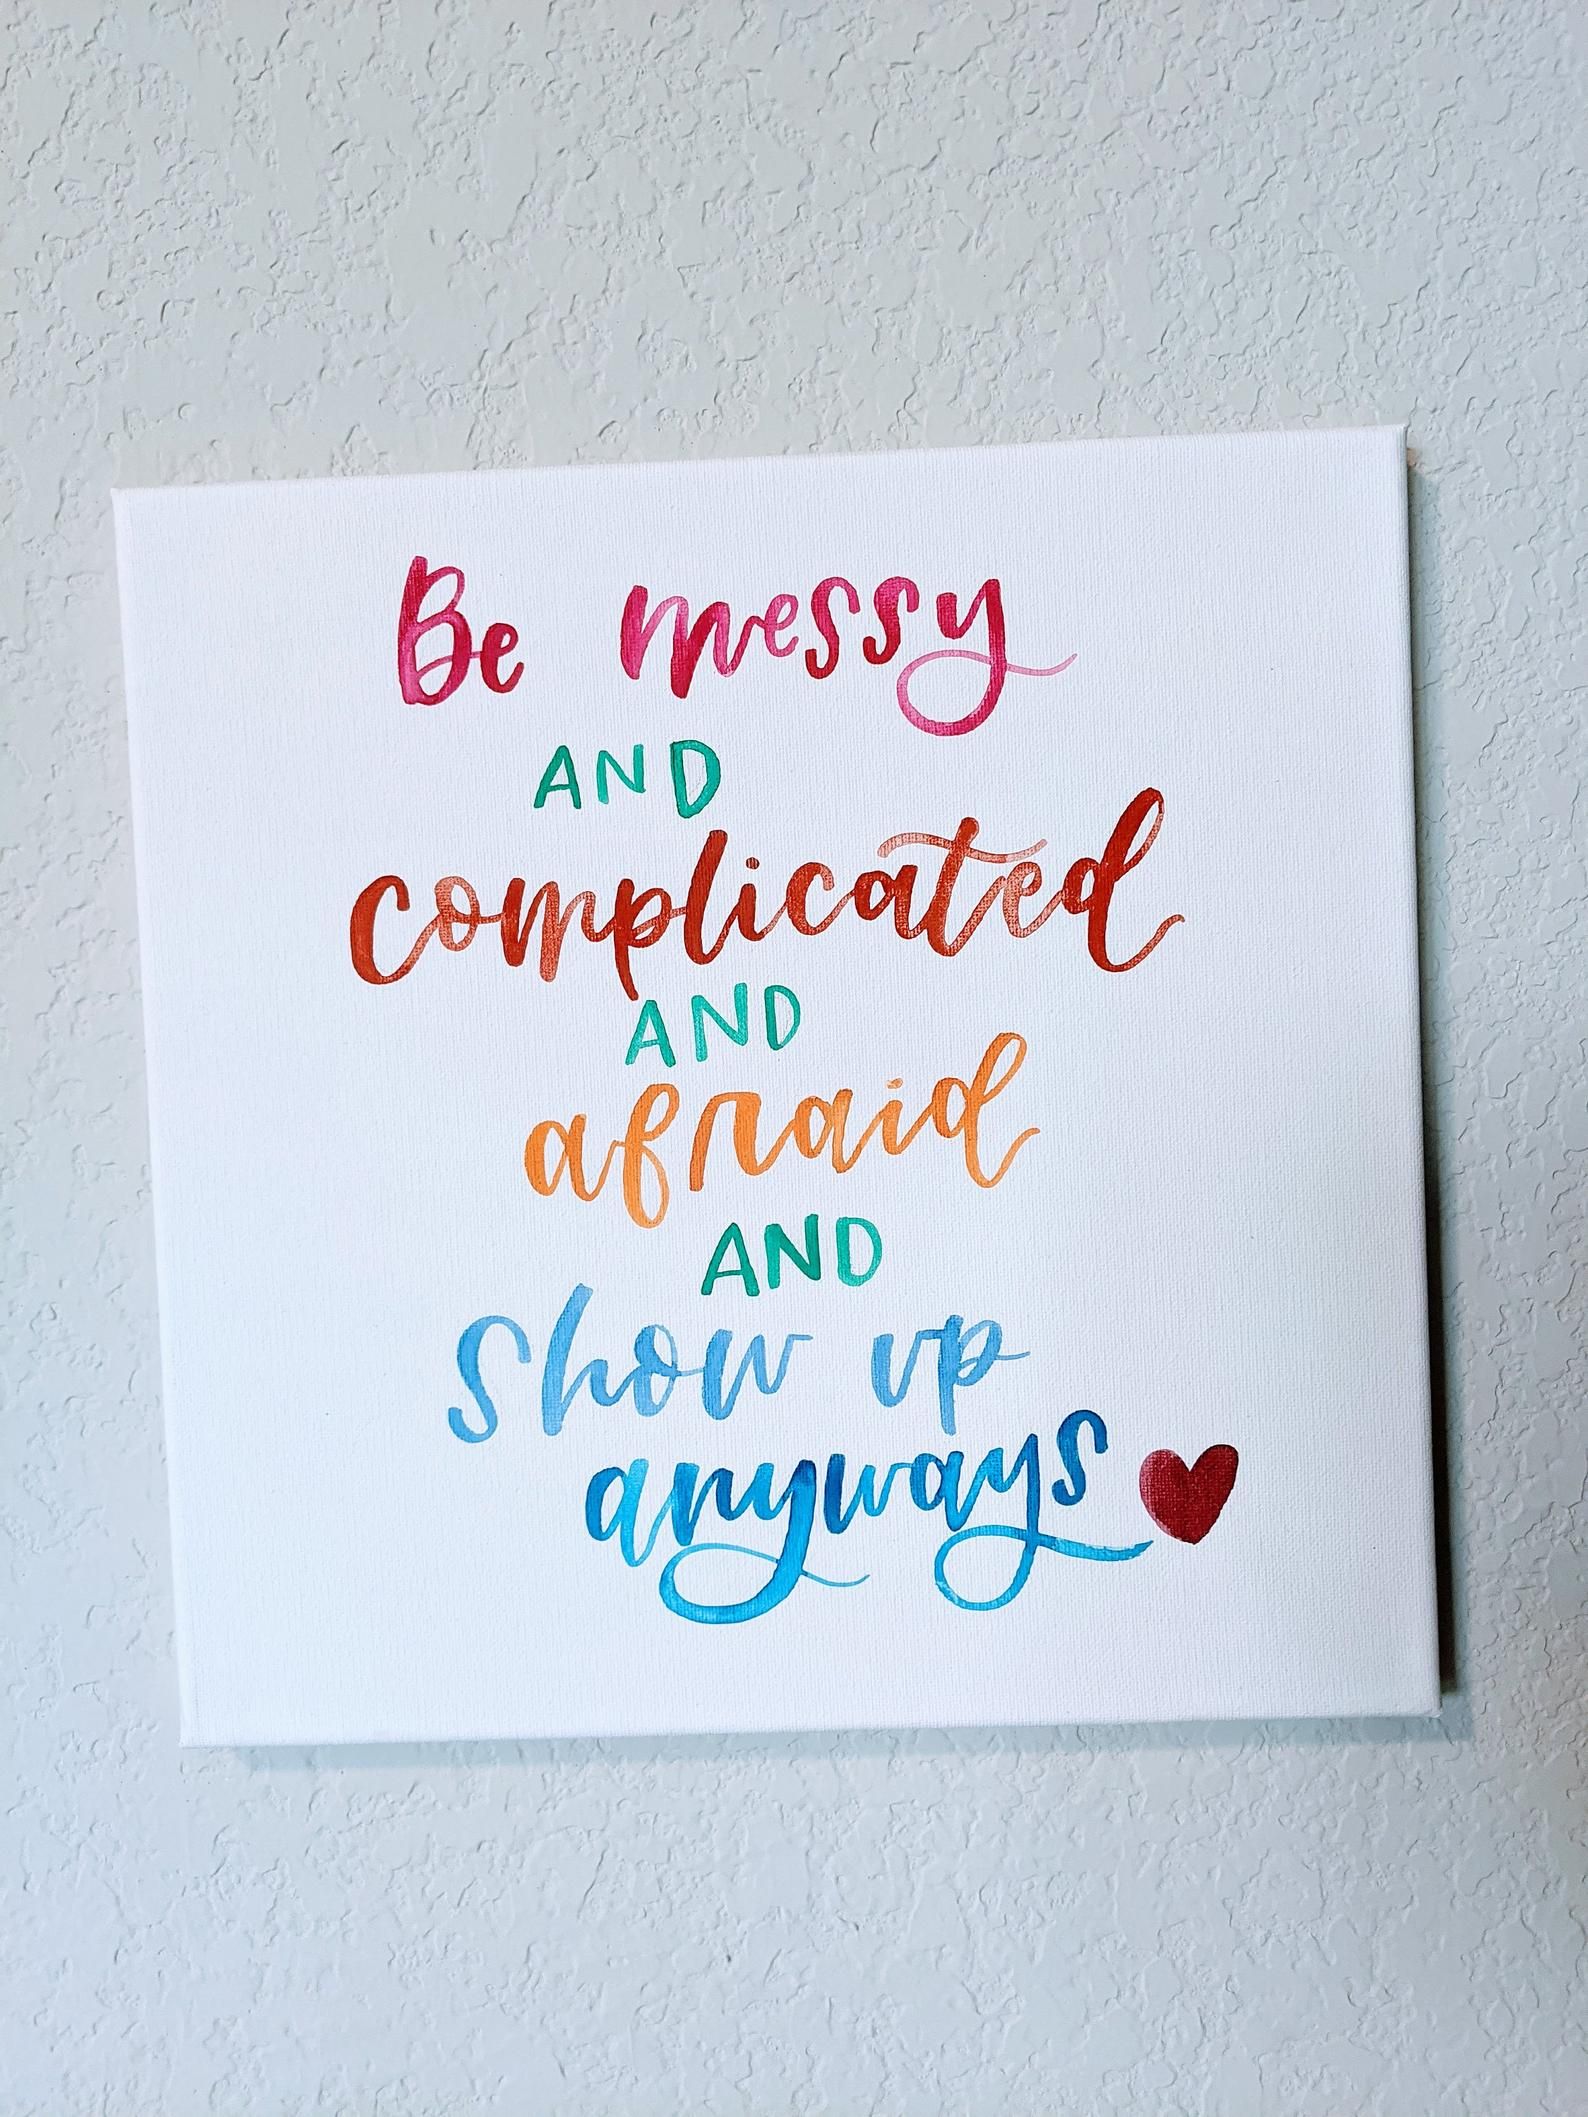 Be messy
AND
complicated
AND
afraid
AND
Show up
anyways